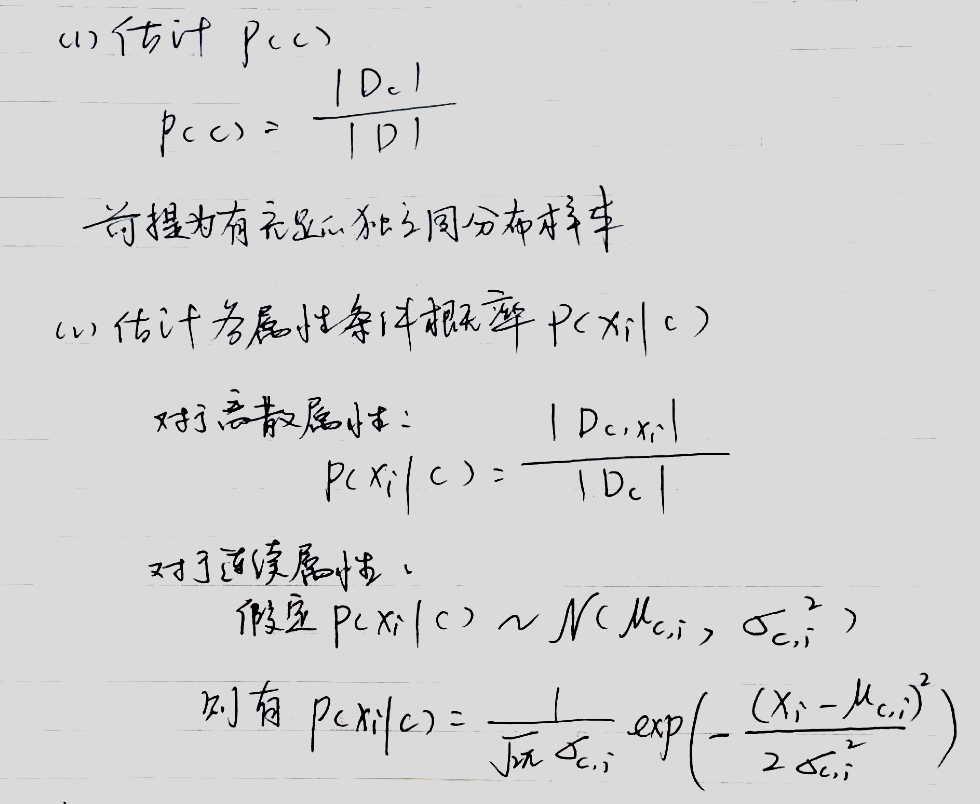 (1) 估计 P(c)
P(c) = |D_c| / |D|
前提为有充足的独立同分布样本
(2) 估计各属性条件概率 P(x_i|c)
对于离散属性:
P(x_i|c) = |D_{c,x_i}| / |D_c|
对于连续属性:
假定 p(x_i|c) ~ N(μ_{c,i}, σ_{c,i}^2)
则有 p(x_i|c) = 1 / (√2π σ_{c,i}) exp(-(x_i - μ_{c,i})^2 / 2σ_{c,i}^2)